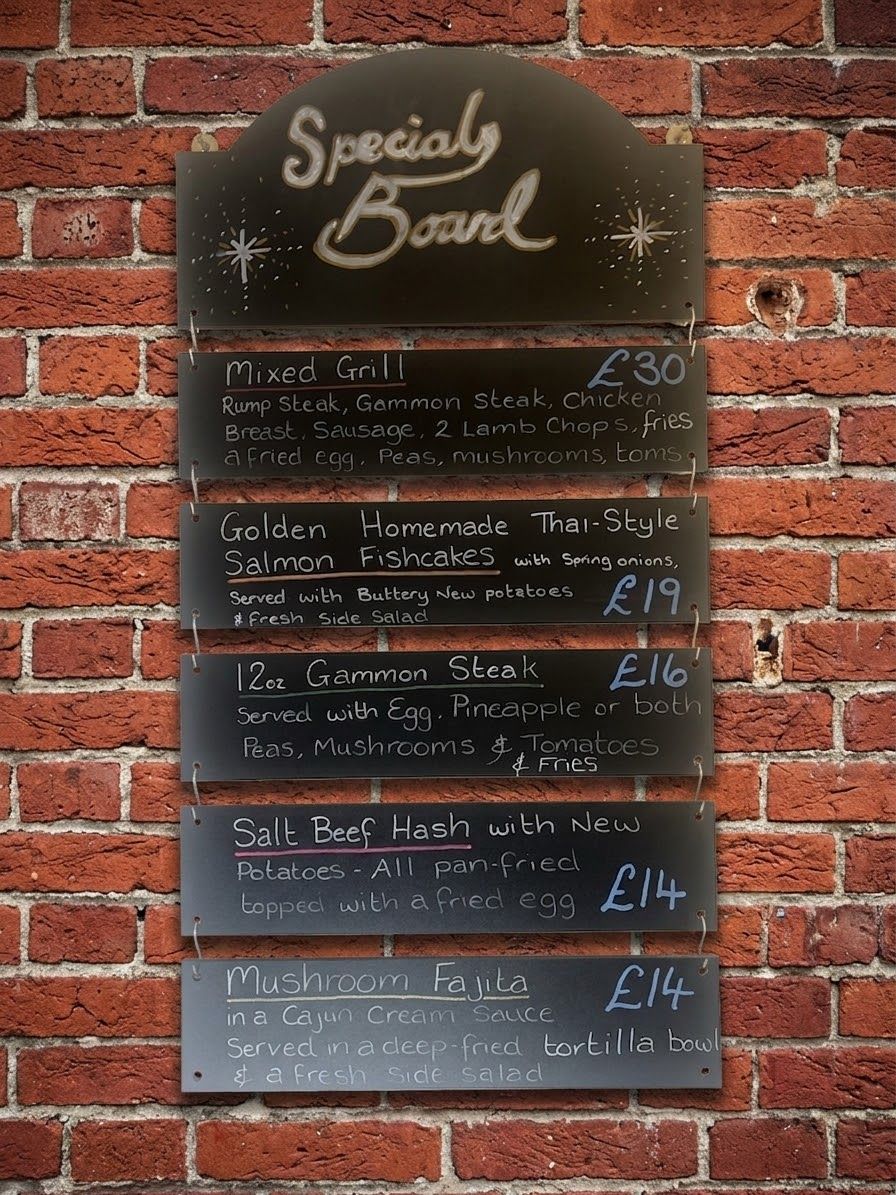 Specials
Board
Mixed Grill £30
Rump Steak, Gammon Steak, Chicken
Breast, Sausage, 2 Lamb Chops, fries
a fried egg, Peas, mushrooms, toms
Golden Homemade Thai-Style
Salmon Fishcakes with Spring onions,
Served with Buttery New potatoes £19
& fresh Side Salad
12oz Gammon Steak £16
Served with Egg, Pineapple or both
Peas, Mushrooms & Tomatoes
& Fries
Salt Beef Hash with New
Potatoes - All pan-fried
topped with a fried egg £14
Mushroom Fajita £14
in a Cajun Cream Sauce
Served in a deep-fried tortilla bowl
& a fresh side salad